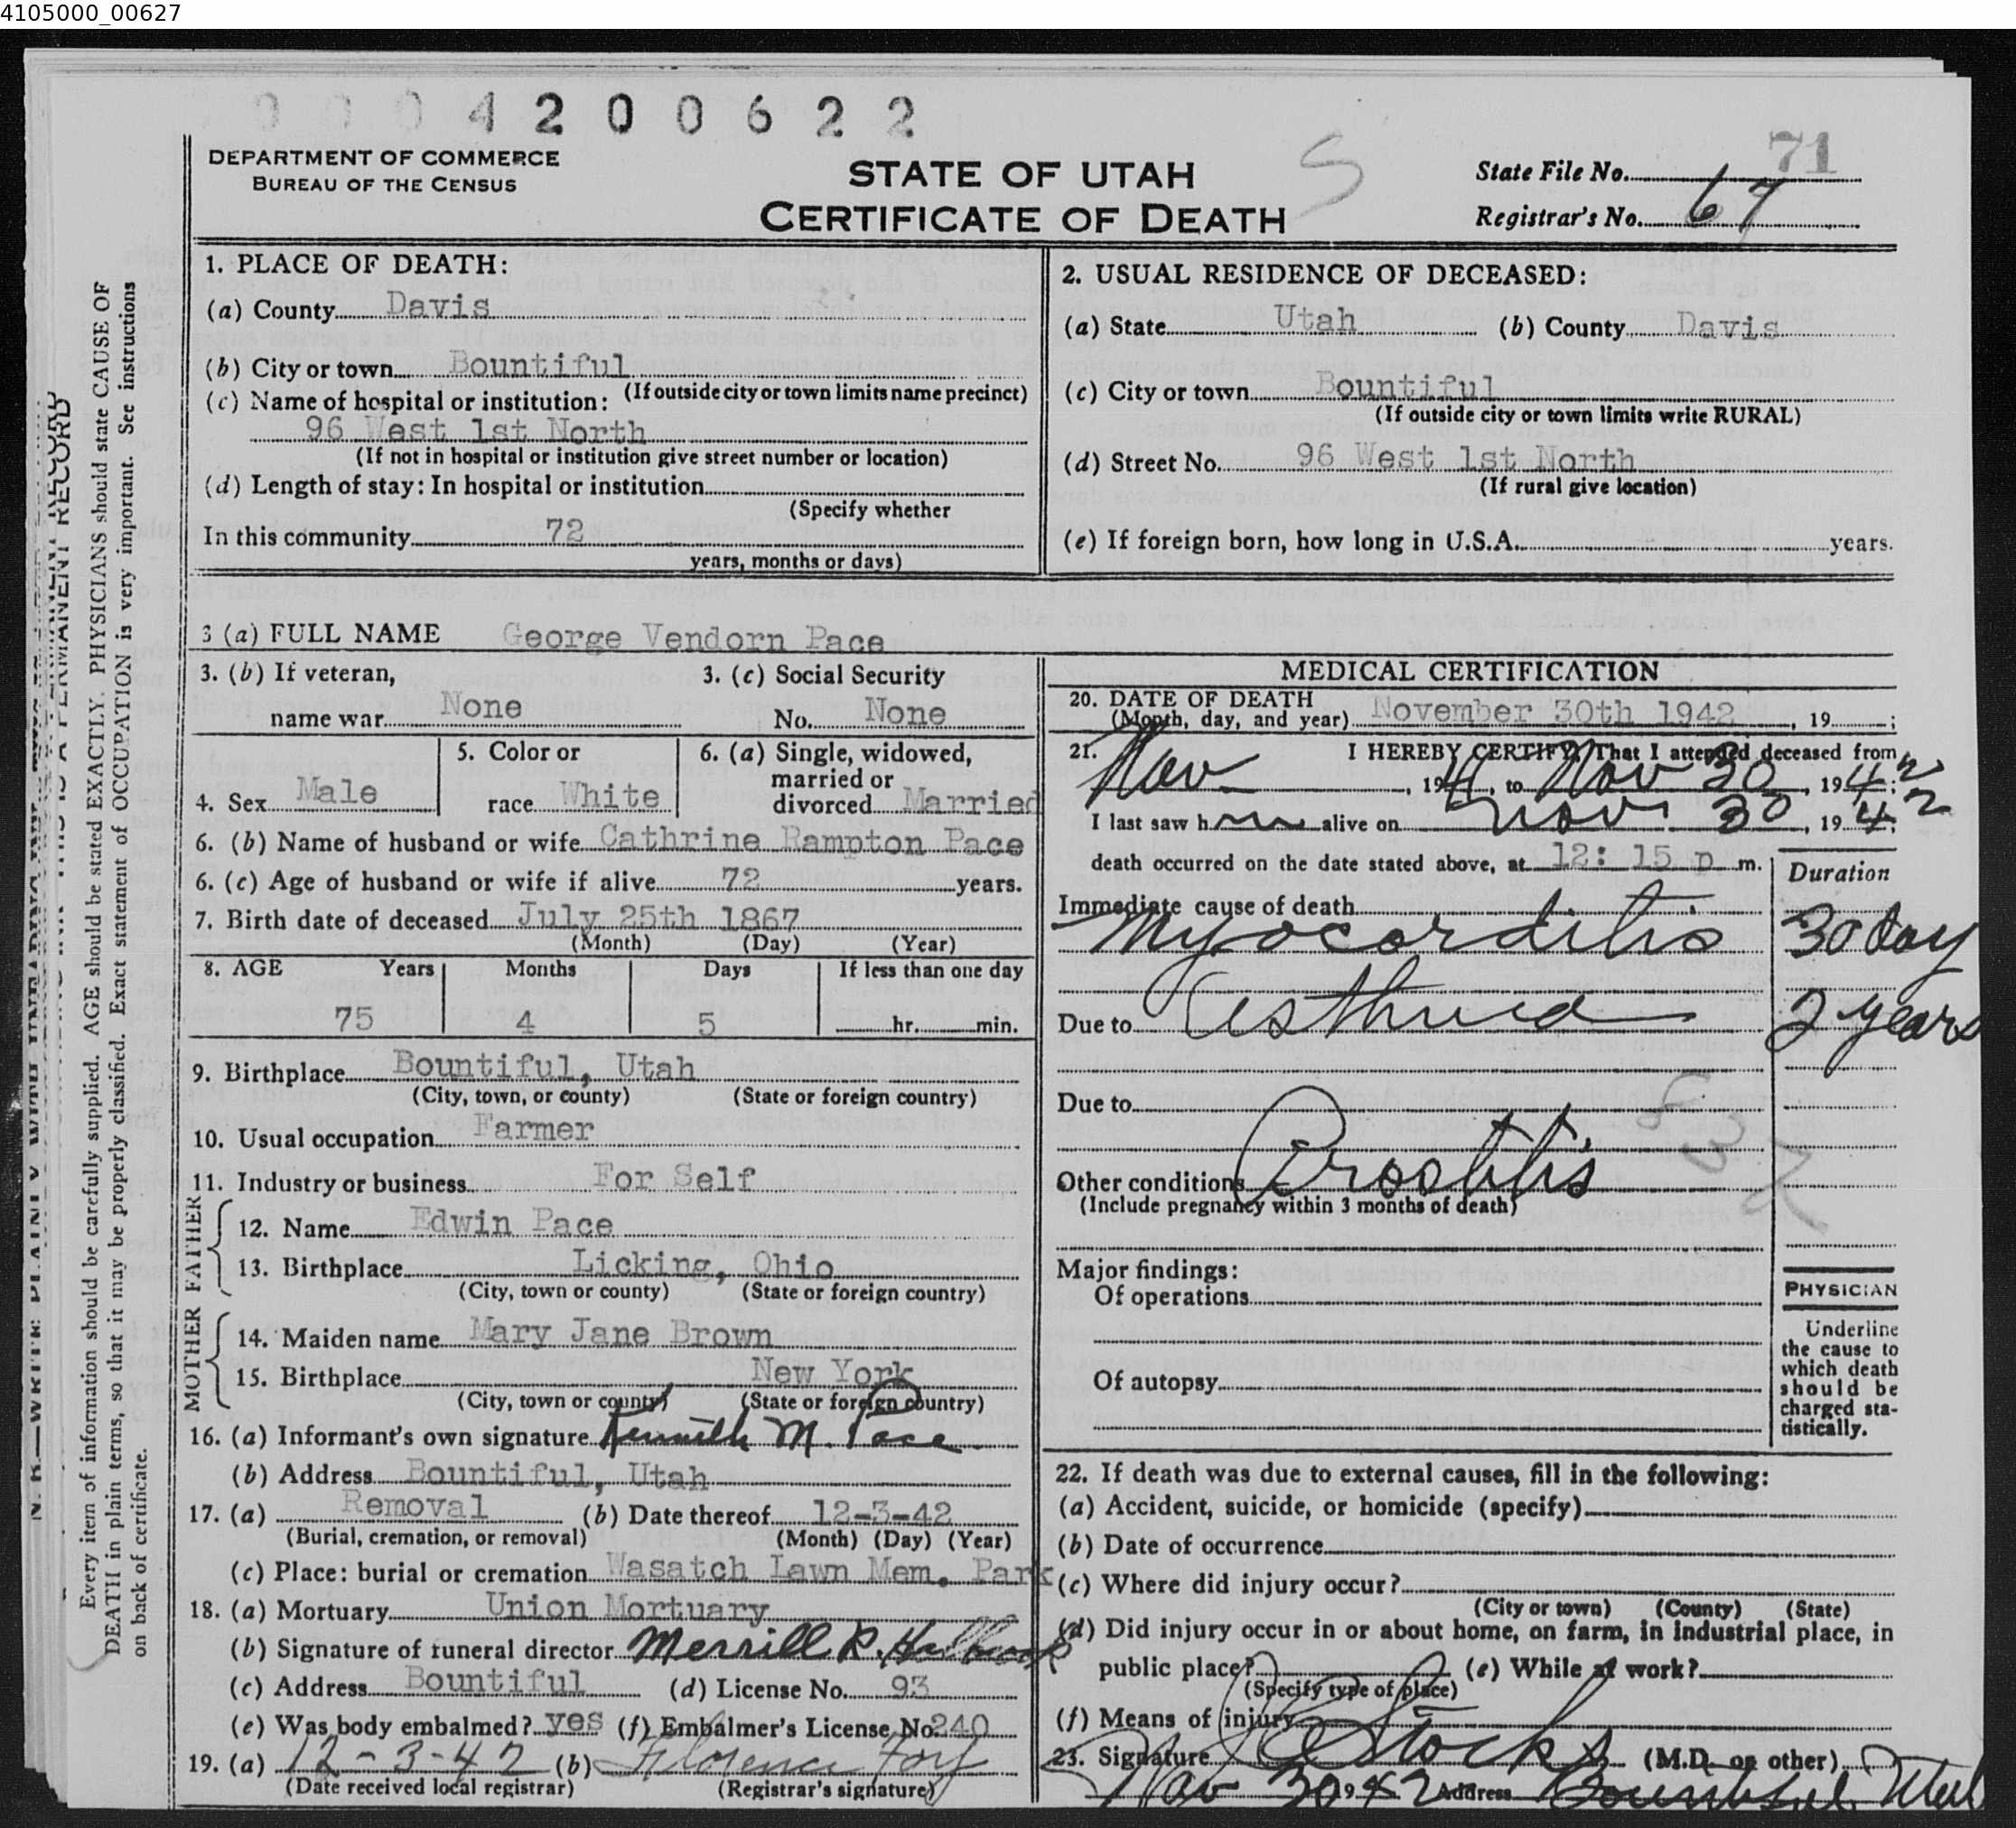 4105000_00627
0004200622
DEPARTMENT OF COMMERCE
BUREAU OF THE CENSUS
STATE OF UTAH
CERTIFICATE OF DEATH
S
State File No. 71
Registrar's No. 67
N. B.—WRITE PLAINLY WITH UNFADING INK—THIS IS A PERMANENT RECORD
Every item of information should be carefully supplied. AGE should be stated EXACTLY. PHYSICIANS should state CAUSE OF
DEATH in plain terms, so that it may be properly classified. Exact statement of OCCUPATION is very important. See instructions
on back of certificate.
1. PLACE OF DEATH:
(a) County Davis
(b) City or town Bountiful
(If outside city or town limits name precinct)
(c) Name of hospital or institution:
96 West 1st North
(If not in hospital or institution give street number or location)
(d) Length of stay: In hospital or institution
(Specify whether
In this community 72
years, months or days)
2. USUAL RESIDENCE OF DECEASED:
(a) State Utah (b) County Davis
(c) City or town Bountiful
(If outside city or town limits write RURAL)
(d) Street No. 96 West 1st North
(If rural give location)
(e) If foreign born, how long in U.S.A. years.
3 (a) FULL NAME George Vendorn Pace
3. (b) If veteran,
name war None
3. (c) Social Security
No. None
4. Sex Male
5. Color or
race White
6. (a) Single, widowed,
married or
divorced Married
6. (b) Name of husband or wife Cathrine Rampton Pace
6. (c) Age of husband or wife if alive 72 years.
7. Birth date of deceased July 25th 1867
(Month) (Day) (Year)
8. AGE Years Months Days If less than one day
75 4 5 hr. min.
9. Birthplace Bountiful, Utah
(City, town, or county) (State or foreign country)
10. Usual occupation Farmer
11. Industry or business For Self
FATHER
12. Name Edwin Pace
13. Birthplace Licking, Ohio
(City, town or county) (State or foreign country)
MOTHER
14. Maiden name Mary Jane Brown
15. Birthplace New York
(City, town or county) (State or foreign country)
16. (a) Informant's own signature Kenneth M. Pace
(b) Address Bountiful, Utah
17. (a) Removal (b) Date thereof 12-3-42
(Burial, cremation, or removal) (Month) (Day) (Year)
(c) Place: burial or cremation Wasatch Lawn Mem. Park
18. (a) Mortuary Union Mortuary
(b) Signature of funeral director Merrill R. Holbrook
(c) Address Bountiful (d) License No. 93
(e) Was body embalmed? yes (f) Embalmer's License No. 240
19. (a) 12-3-42 (b) Florence Foy
(Date received local registrar) (Registrar's signature)
MEDICAL CERTIFICATION
20. DATE OF DEATH
(Month, day, and year) November 30th 1942, 19 ;
21. I HEREBY CERTIFY, That I attended deceased from
Nov , 1941, to Nov 30, 1942;
I last saw him alive on Nov. 30, 1942;
death occurred on the date stated above, at 12:15 p m.
Duration
Immediate cause of death
Myocarditis 30 day
Due to Asthma 2 years
Due to
Other conditions Prostitis
(Include pregnancy within 3 months of death)
Major findings:
Of operations
Of autopsy
PHYSICIAN
Underline
the cause to
which death
should be
charged sta-
tistically.
22. If death was due to external causes, fill in the following:
(a) Accident, suicide, or homicide (specify)
(b) Date of occurrence
(c) Where did injury occur?
(City or town) (County) (State)
(d) Did injury occur in or about home, on farm, in industrial place, in
public place?
(Specify type of place)
(e) While at work?
(f) Means of injury
23. Signature Stocks (M.D. or other)
Nov 30 1942 Address Bountiful, Utah